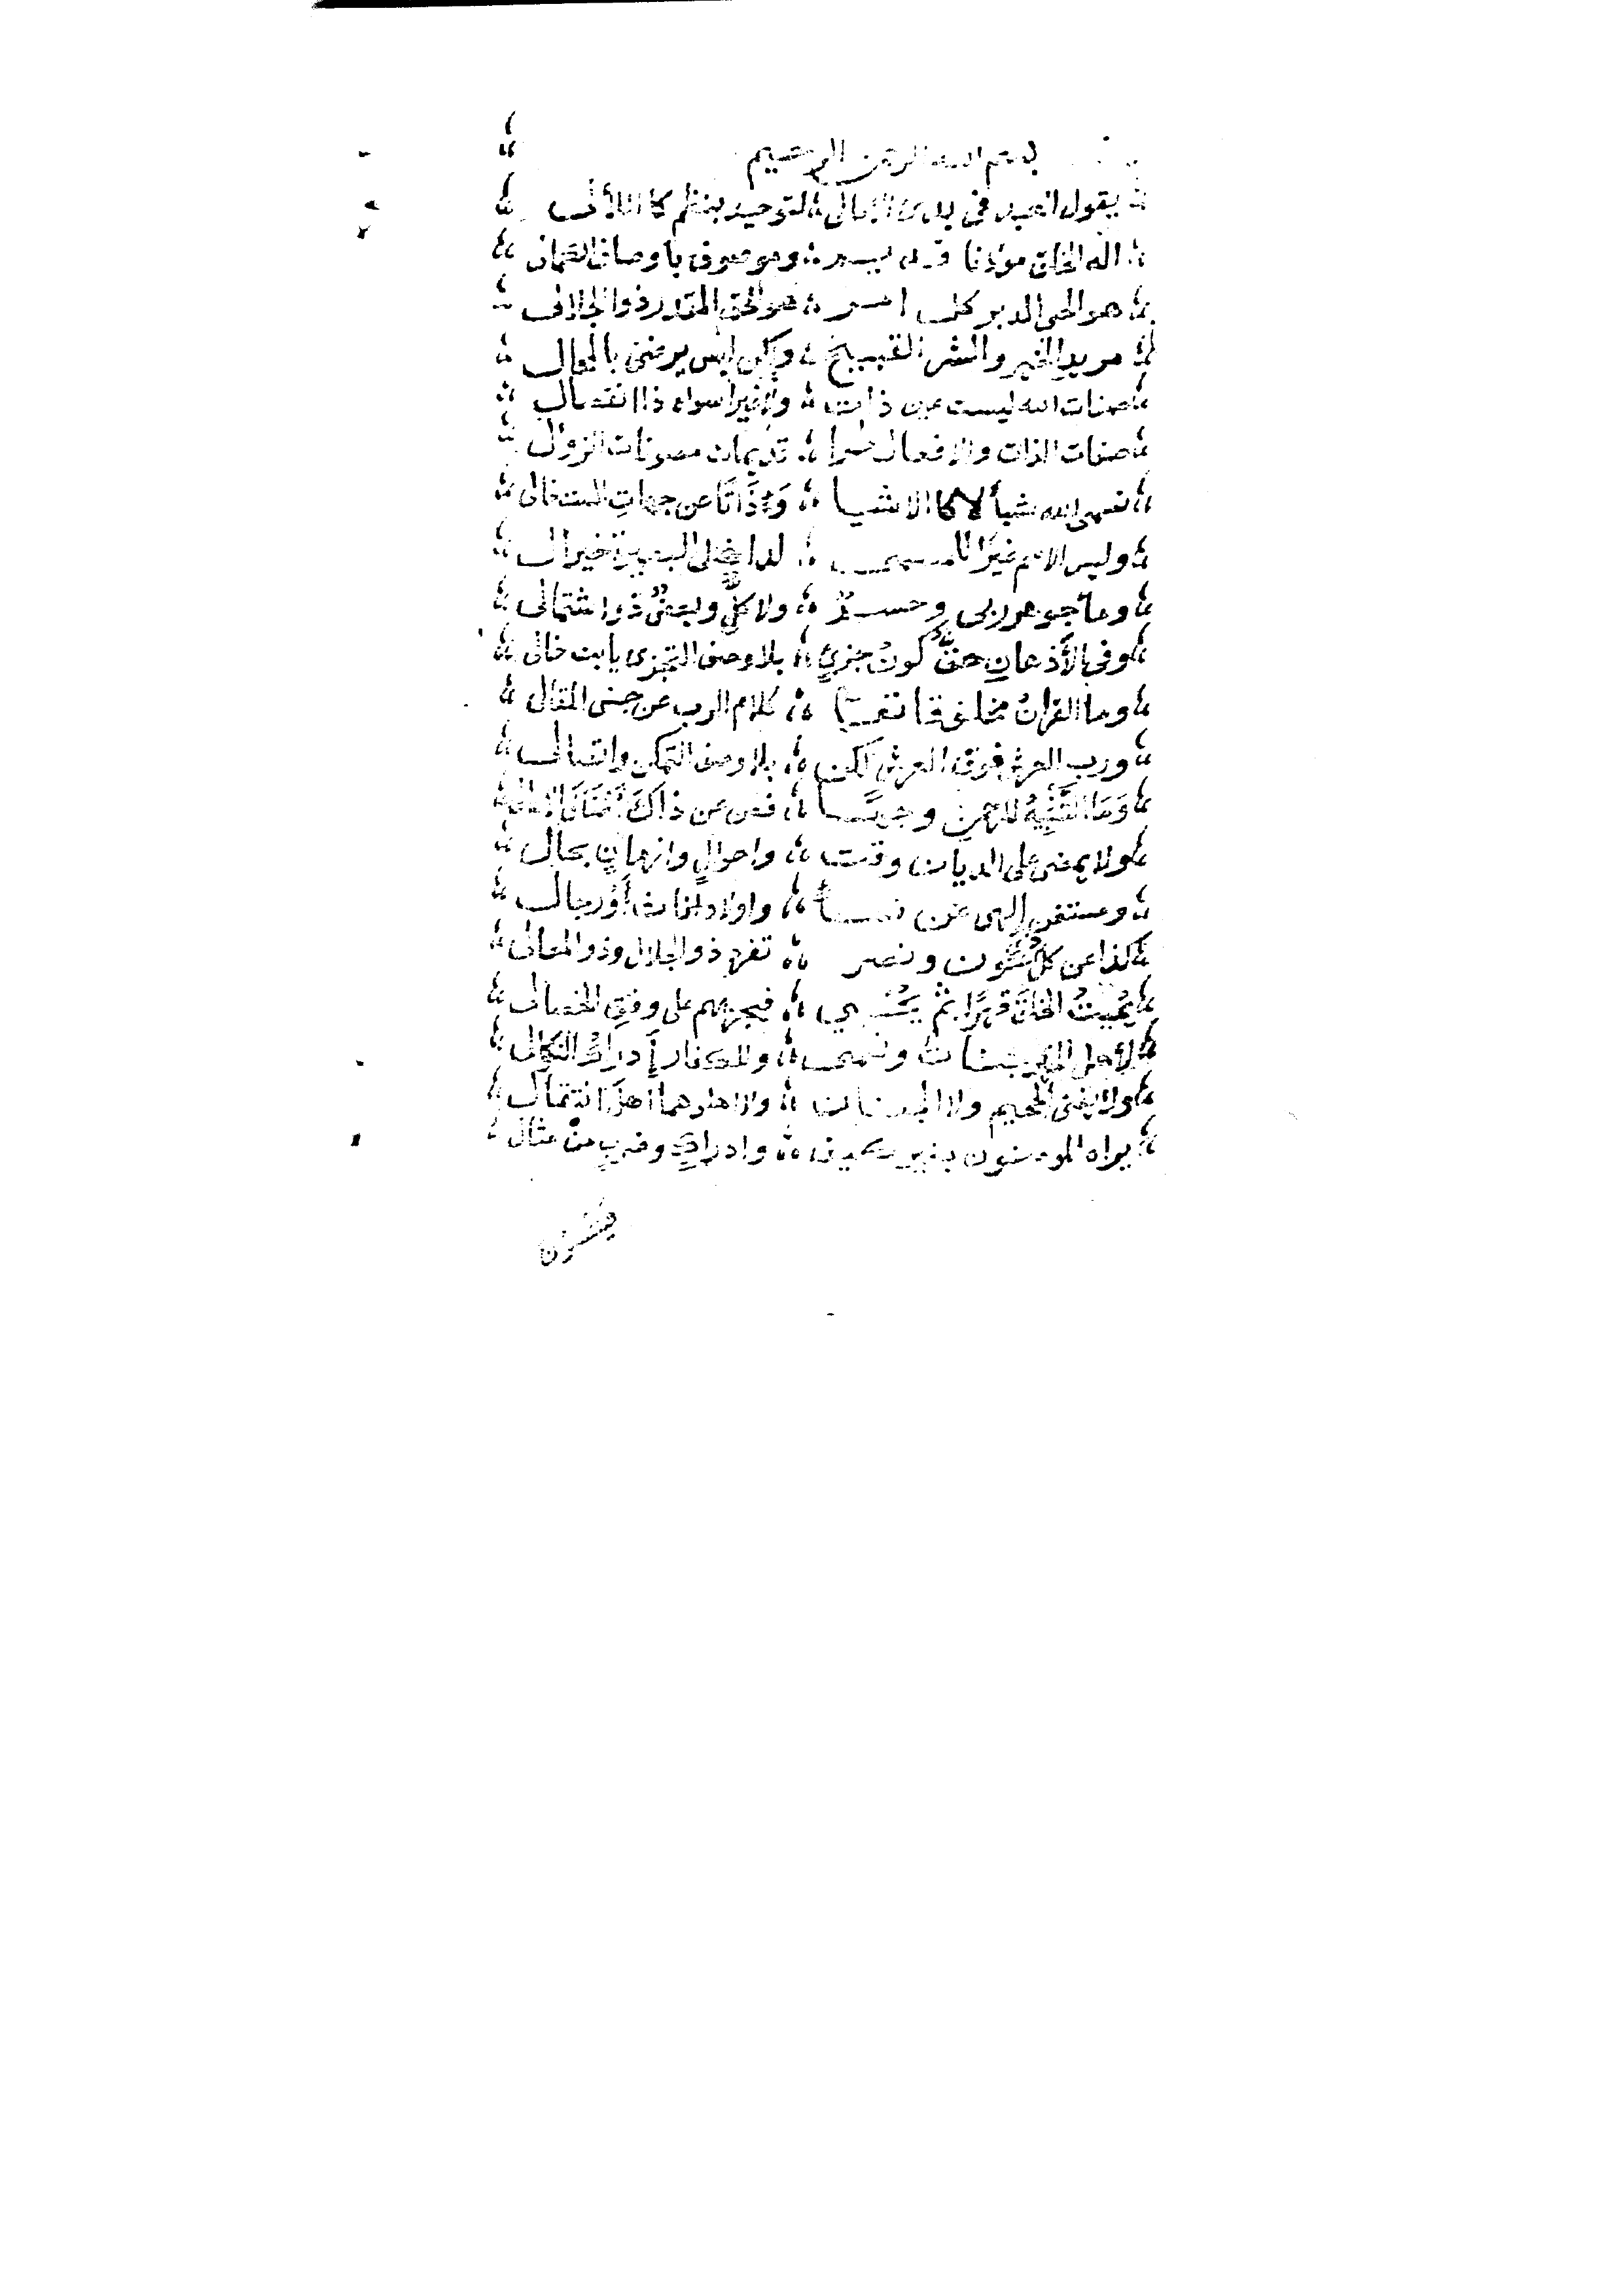 بسم الله الرحمن الرحيم
يقول العبد في بدء الامالي لتوحيد بنظم كاللآلي
اله الخلق مولانا قديم وموصوف باوصاف الكمال
هو الحي المدبر كل امر هو الحق المقدر ذو الجلال
مريد الخير والشر القبيح ولكن ليس يرضى بالمحال
صفات الله ليست عين ذات ولا غيرا سواه ذا انفصال
صفات الذات والافعال طرا قديمات مصونات الزوال
نسمى الله شيأ لا كالاشيا وَذَاتًا عن جهاتِ الست خالى
وليس الاسم غيرًا للمسمى لدا اهل البصيرة خير ال
وما ان جوهر ربى وجسمٌ ولا كلٌّ وبعضٌ ذو اشتمالى
وفى الأذهانِ حقٌّ كونُ جزئٍ بلا وصف التجزى يا بن خالى
وما القرانُ مخلوقا تعالى كلام الرب عن جنس المقال
ورب العرش فوق العرش لكن بلا وصف التمكن واتصال
وَمَا التَّشْبِيهُ للرحمن وجهًا فصن عن ذاكَ اصناف الاهالى
ولا يمضى على الديان وقت واحوالٍ وازمانٍ بحال
ومستغن إلهى عن نساأ واولاد اناث أوْ رجال
كذا عن كل ذى عون ونصر تفرد ذو الجلال وذو المعالى
يُمِيتُ الخلقَ قهرًا ثم يحيي فيجزيهم على وفق الخصال
لأهل الخير جنات ونعمى وللكفار إدراك النكال
ولا يفنى الجحيم ولا الجنان ولا اهلوهما اهل انتقال
يراه المومنون بغير كيف وادراكٍ وضربٍ من مثال
فينسون